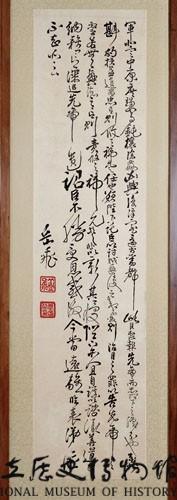 軍北定中原庶竭駑鈍攘除姦凶興復漢室還於舊都此臣所以報先帝而忠陛下之職分也至於
斟酌損益進盡忠言則攸之禕允之任也願陛下託臣以討賊興復之效不效則治臣之罪以告先帝
之靈若無興德之言則責攸之禕允等咎以彰其慢陛下亦宜自謀以諮諏善道察
納雅言深追先帝遺詔臣不勝受恩感激今當遠離臨表涕泣
不知所云
岳飛
立歷史博物館
IONAL MUSEUM OF HISTORY